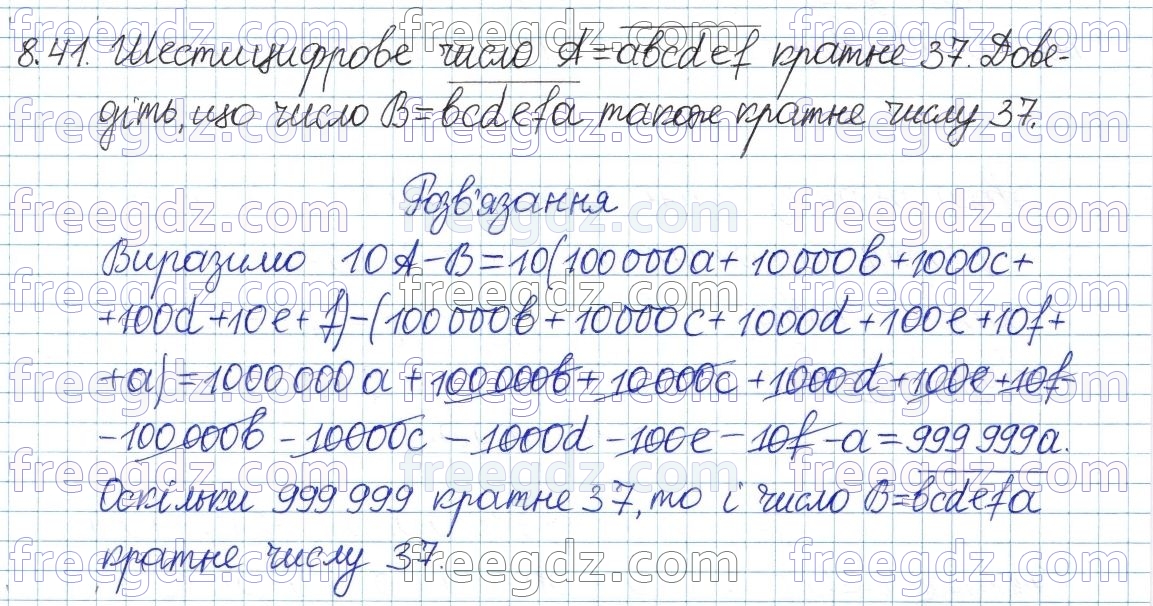 8.41. Шестицифрове число A=abcdef кратне 37. Дове-
діть, що число B=bcdefa також кратне числу 37.
Розв'язання
Виразимо 10A-B=10(100000a+10000b+1000c+
+100d+10e+f)-(100000b+10000c+1000d+100e+10f+
+a)=1000000a+100000b+10000c+1000d+100e+10f-
-100000b-10000c-1000d-100e-10f-a=999999a.
Оскільки 999999 кратне 37, то і число B=bcdefa
кратне числу 37.
freegdz.com